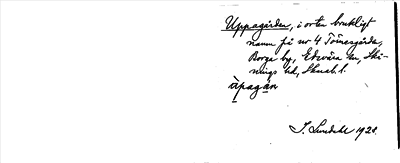 Uppagården, i orten brukligt
namn på nr 4 Tönesgården,
Borga by, Edsvära sn, Ski-
nings hd, Skarab. l.
àpagạ̊n
J. Lundahl 1928.